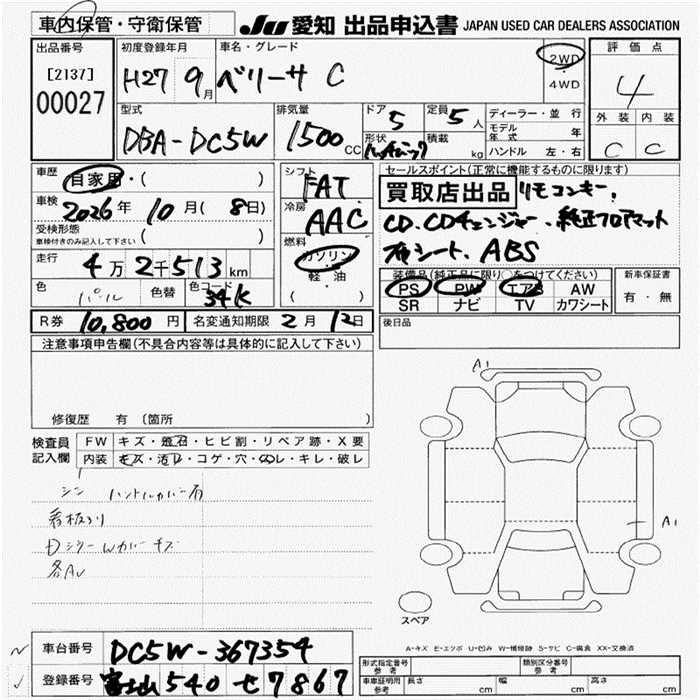 車内保管・守衛保管 JU 愛知 出品申込書 JAPAN USED CAR DEALERS ASSOCIATION
出品番号 初度登録年月 車名・グレード 評価点
[2137] H27 9月 ベリーサ C 2WD・4WD 4
00027
型式 排気量 ドア 5 定員 5人 ディーラー・並行 外装 内装
DBA-DC5W 1500CC 形状 積載 kg モデル年式 年 C C
ハンドル 左・右
車歴 自家用・( ) シフト FAT セールスポイント(正常に機能するものに限ります)
車検 2026年 10月(8日) 冷房 AAC 買取店出品 リモコンキー、
受検形態 車検付きのみ記入して下さい ( ) CD、CDチェンジャー、純正フロアマット
走行 4万2千513km 燃料 ガソリン・軽・油 ( ) 布シート、ABS
色 パール 色替 色コード 34K 装備品(純正品に限り○をつけてください) 新車保証書
PS PW エアB AW 有・無
SR ナビ TV カワシート
R券 10,800円 名変通知期限 2月12日 後日品
注意事項申告欄(不具合内容等は具体的に記入して下さい)
修復歴 有〔箇所 〕
検査員記入欄 FW キズ・飛石・ヒビ割・リペア跡・X要
内装 キズ・汚レ・コゲ・穴・スレ・キレ・破レ
ハンドルカバー有
看板跡
A1
A1
スペア
A-キズ E-エクボ U-凹み W-補修跡 S-サビ C-腐食 XX-交換済
車台番号 DC5W-367354
登録番号 富士山 540 せ 7867
形式指定番号 参考 類別区分番号 参考
車庫証明用 参考 長さ cm 幅 cm 高さ cm